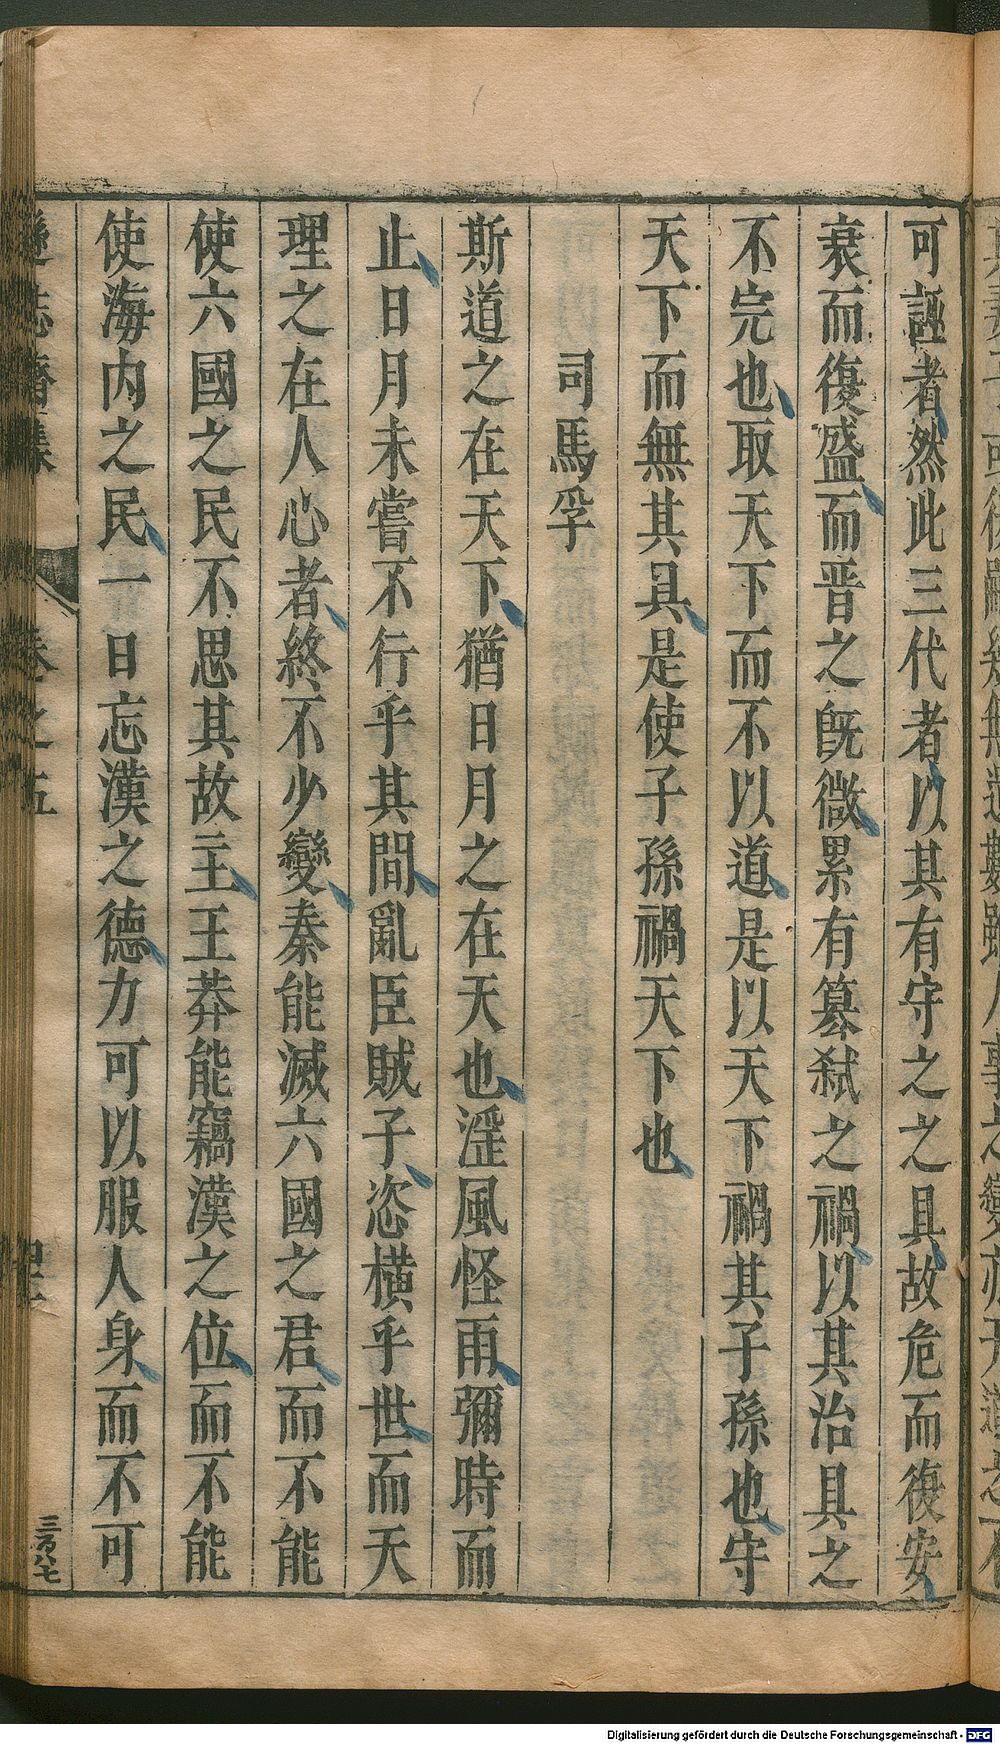 可誣者然此三代者以其有守之之具故危而復安
衰而復盛而晋之旣微累有篡弑之禍以其治具之
不完也取天下而不以道是以天下禍其子孫也守
天下而無其具是使子孫禍天下也
司馬孚
斯道之在天下猶日月之在天也淫風怪雨彌時而
止日月未嘗不行乎其間亂臣賊子恣橫乎世而天
理之在人心者終不少變秦能滅六國之君而不能
使六國之民不思其故主王莽能竊漢之位而不能
使海内之民一日忘漢之德力可以服人身而不可
遜志齋集
卷之五
三百八七
Digitalisierung gefördert durch die Deutsche Forschungsgemeinschaft - DFG